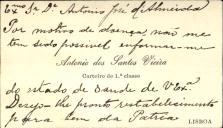 Exmo Sr. Dr. Antonio José d'Almeida
Por motivo de doença, não me
tem sido possivel enformar-me
Antonio dos Santos Vieira
Carteiro de 1.ª classe
do estado de Saude de V. Exa.
Desejo-lhe pronto restabelecimento
para bem da Patria
LISBOA